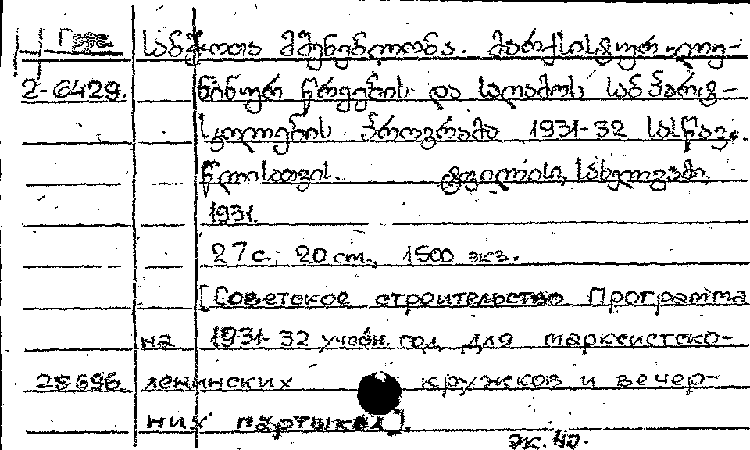 Груз. საბჭოთა მშენებლობა. მარქსისტულ-ლენ-
2-6429. ნინურ წრეების და საღამოს საბპარტ-
სკოლების პროგრამა 1931-32 სასწავ.
წლისათვის. ტფილისი, სახელგამი,
1931.
27 с.; 20 cm., 1500 экз.
[Советское строительство Программа
на 1931-32 учебн. год для марксистско-
28696. ленинских кружков и вечер-
них партшкол].
эк. 40.